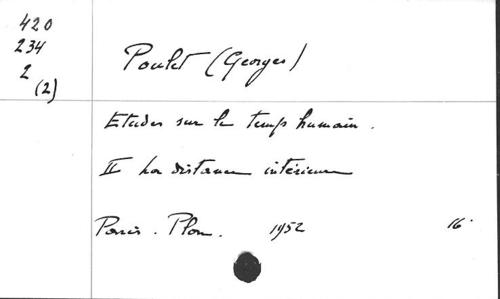 420
234
2
(2)
Poulet (Georges)
Etudes sur le temps humain.
II La distance intérieure
Paris. Plon. 1952 16°